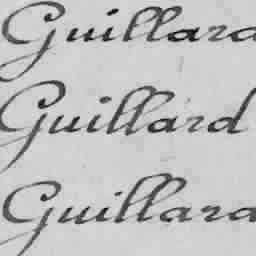 Guillard
Guillard
Guillard